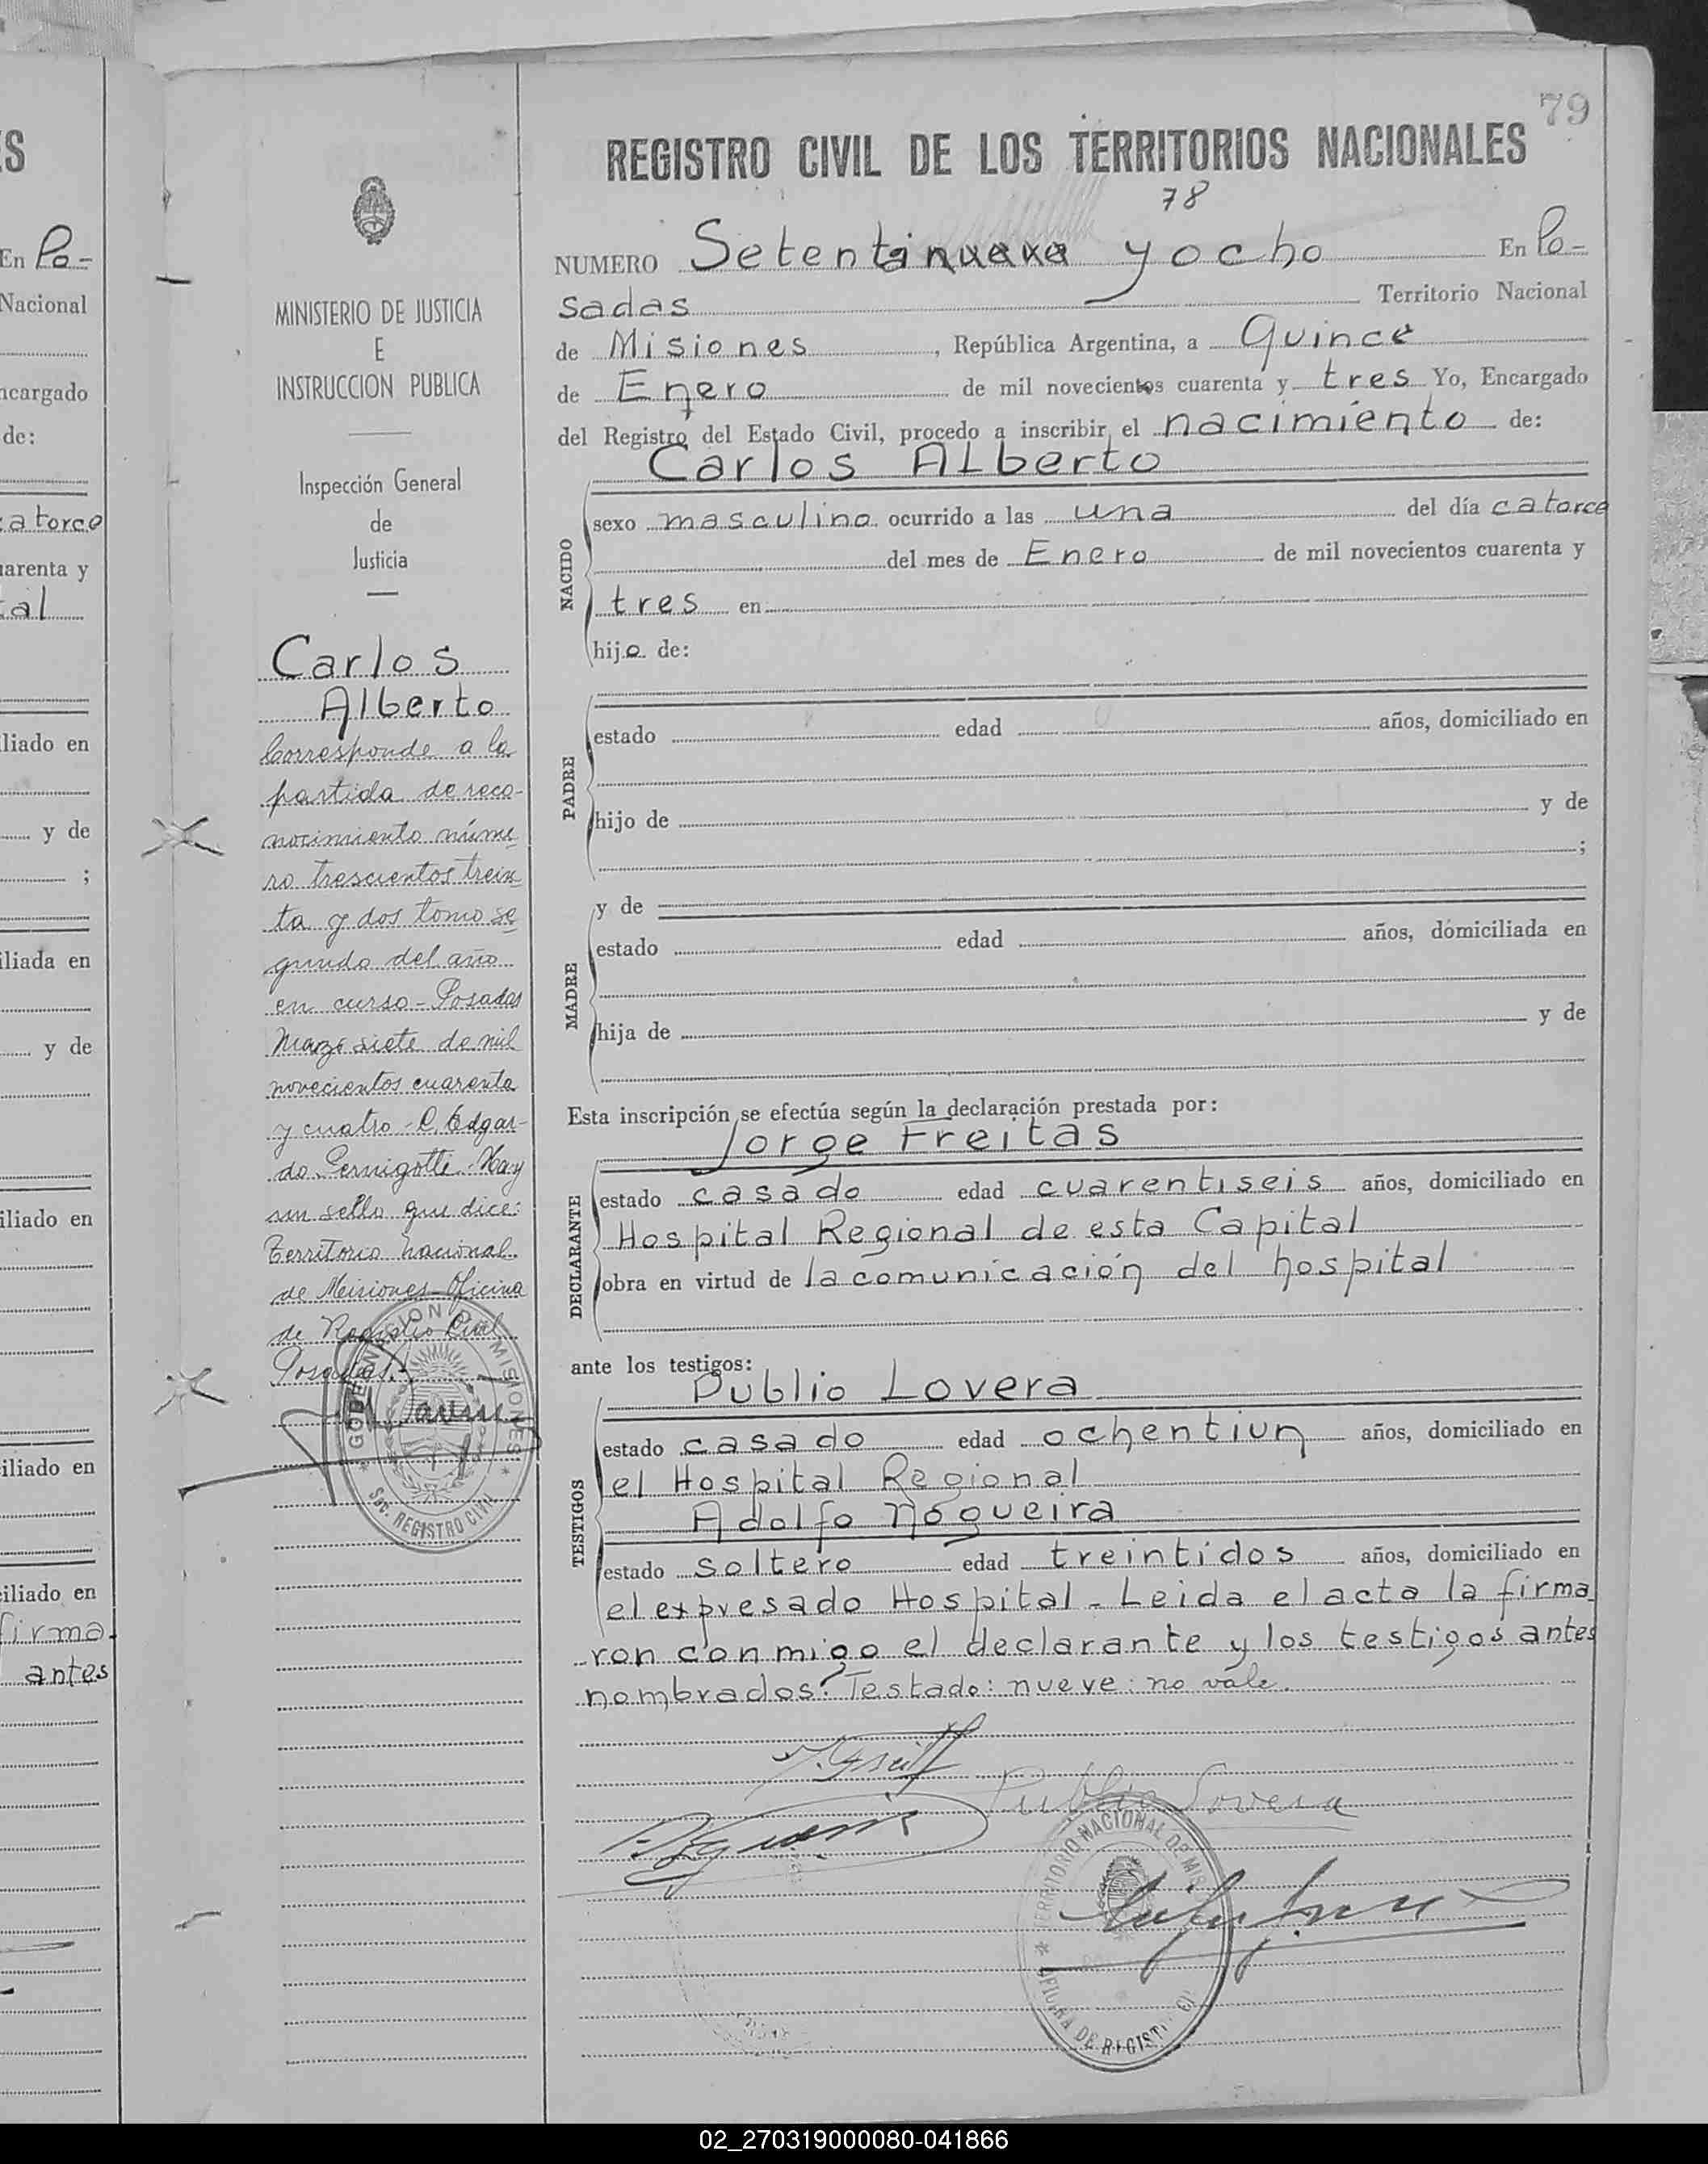 79
REGISTRO CIVIL DE LOS TERRITORIOS NACIONALES
78
NUMERO Setentinueve y ocho En Po-
sadas Territorio Nacional
de Misiones, República Argentina, a Quince
de Enero de mil novecientos cuarenta y tres Yo, Encargado
del Registro del Estado Civil, procedo a inscribir el nacimiento de:
Carlos Alberto
NACIDO
sexo masculino ocurrido a las una del día catorce
del mes de Enero de mil novecientos cuarenta y
tres en
hijo de:
PADRE
estado edad años, domiciliado en
hijo de y de
;
MADRE
y de
estado edad años, domiciliada en
hija de y de
Esta inscripción se efectúa según la declaración prestada por:
Jorge Freitas
DECLARANTE
estado casado edad cuarentiseis años, domiciliado en
Hospital Regional de esta Capital
obra en virtud de la comunicación del hospital
ante los testigos:
Publio Lovera
TESTIGOS
estado casado edad ochentiun años, domiciliado en
el Hospital Regional
Adolfo Nogueira
estado soltero edad treintidos años, domiciliado en
el expresado Hospital - Leida el acta la firma
ron conmigo el declarante y los testigos antes
nombrados. Testado: nueve: no vale.
Publio Lovera
TERRITORIO NACIONAL DE MIS
OFICINA DE REGIST CI
MINISTERIO DE JUSTICIA
E
INSTRUCCION PUBLICA
Inspección General
de
Justicia
Carlos
Alberto
Corresponde a la
partida de reco-
nocimiento núme-
ro trescientos trein-
ta y dos tomo se
gundo del año
en curso - Posadas
Marzo siete de mil
novecientos cuarenta
y cuatro - C. Edgar-
do Pernigotti - Hay
un sello que dice:
Territorio Nacional
de Misiones - Oficina
de Registro Civil
Posadas.-
GOBERNACION DE MISIONES
SEC. REGISTRO CIVIL
ES
En Po-
Nacional
ncargado
de:
catorce
uarenta y
tal
iliado en
y de
;
iliada en
y de
iliado en
iliado en
iliado en
firma
antes
02_270319000080-041866